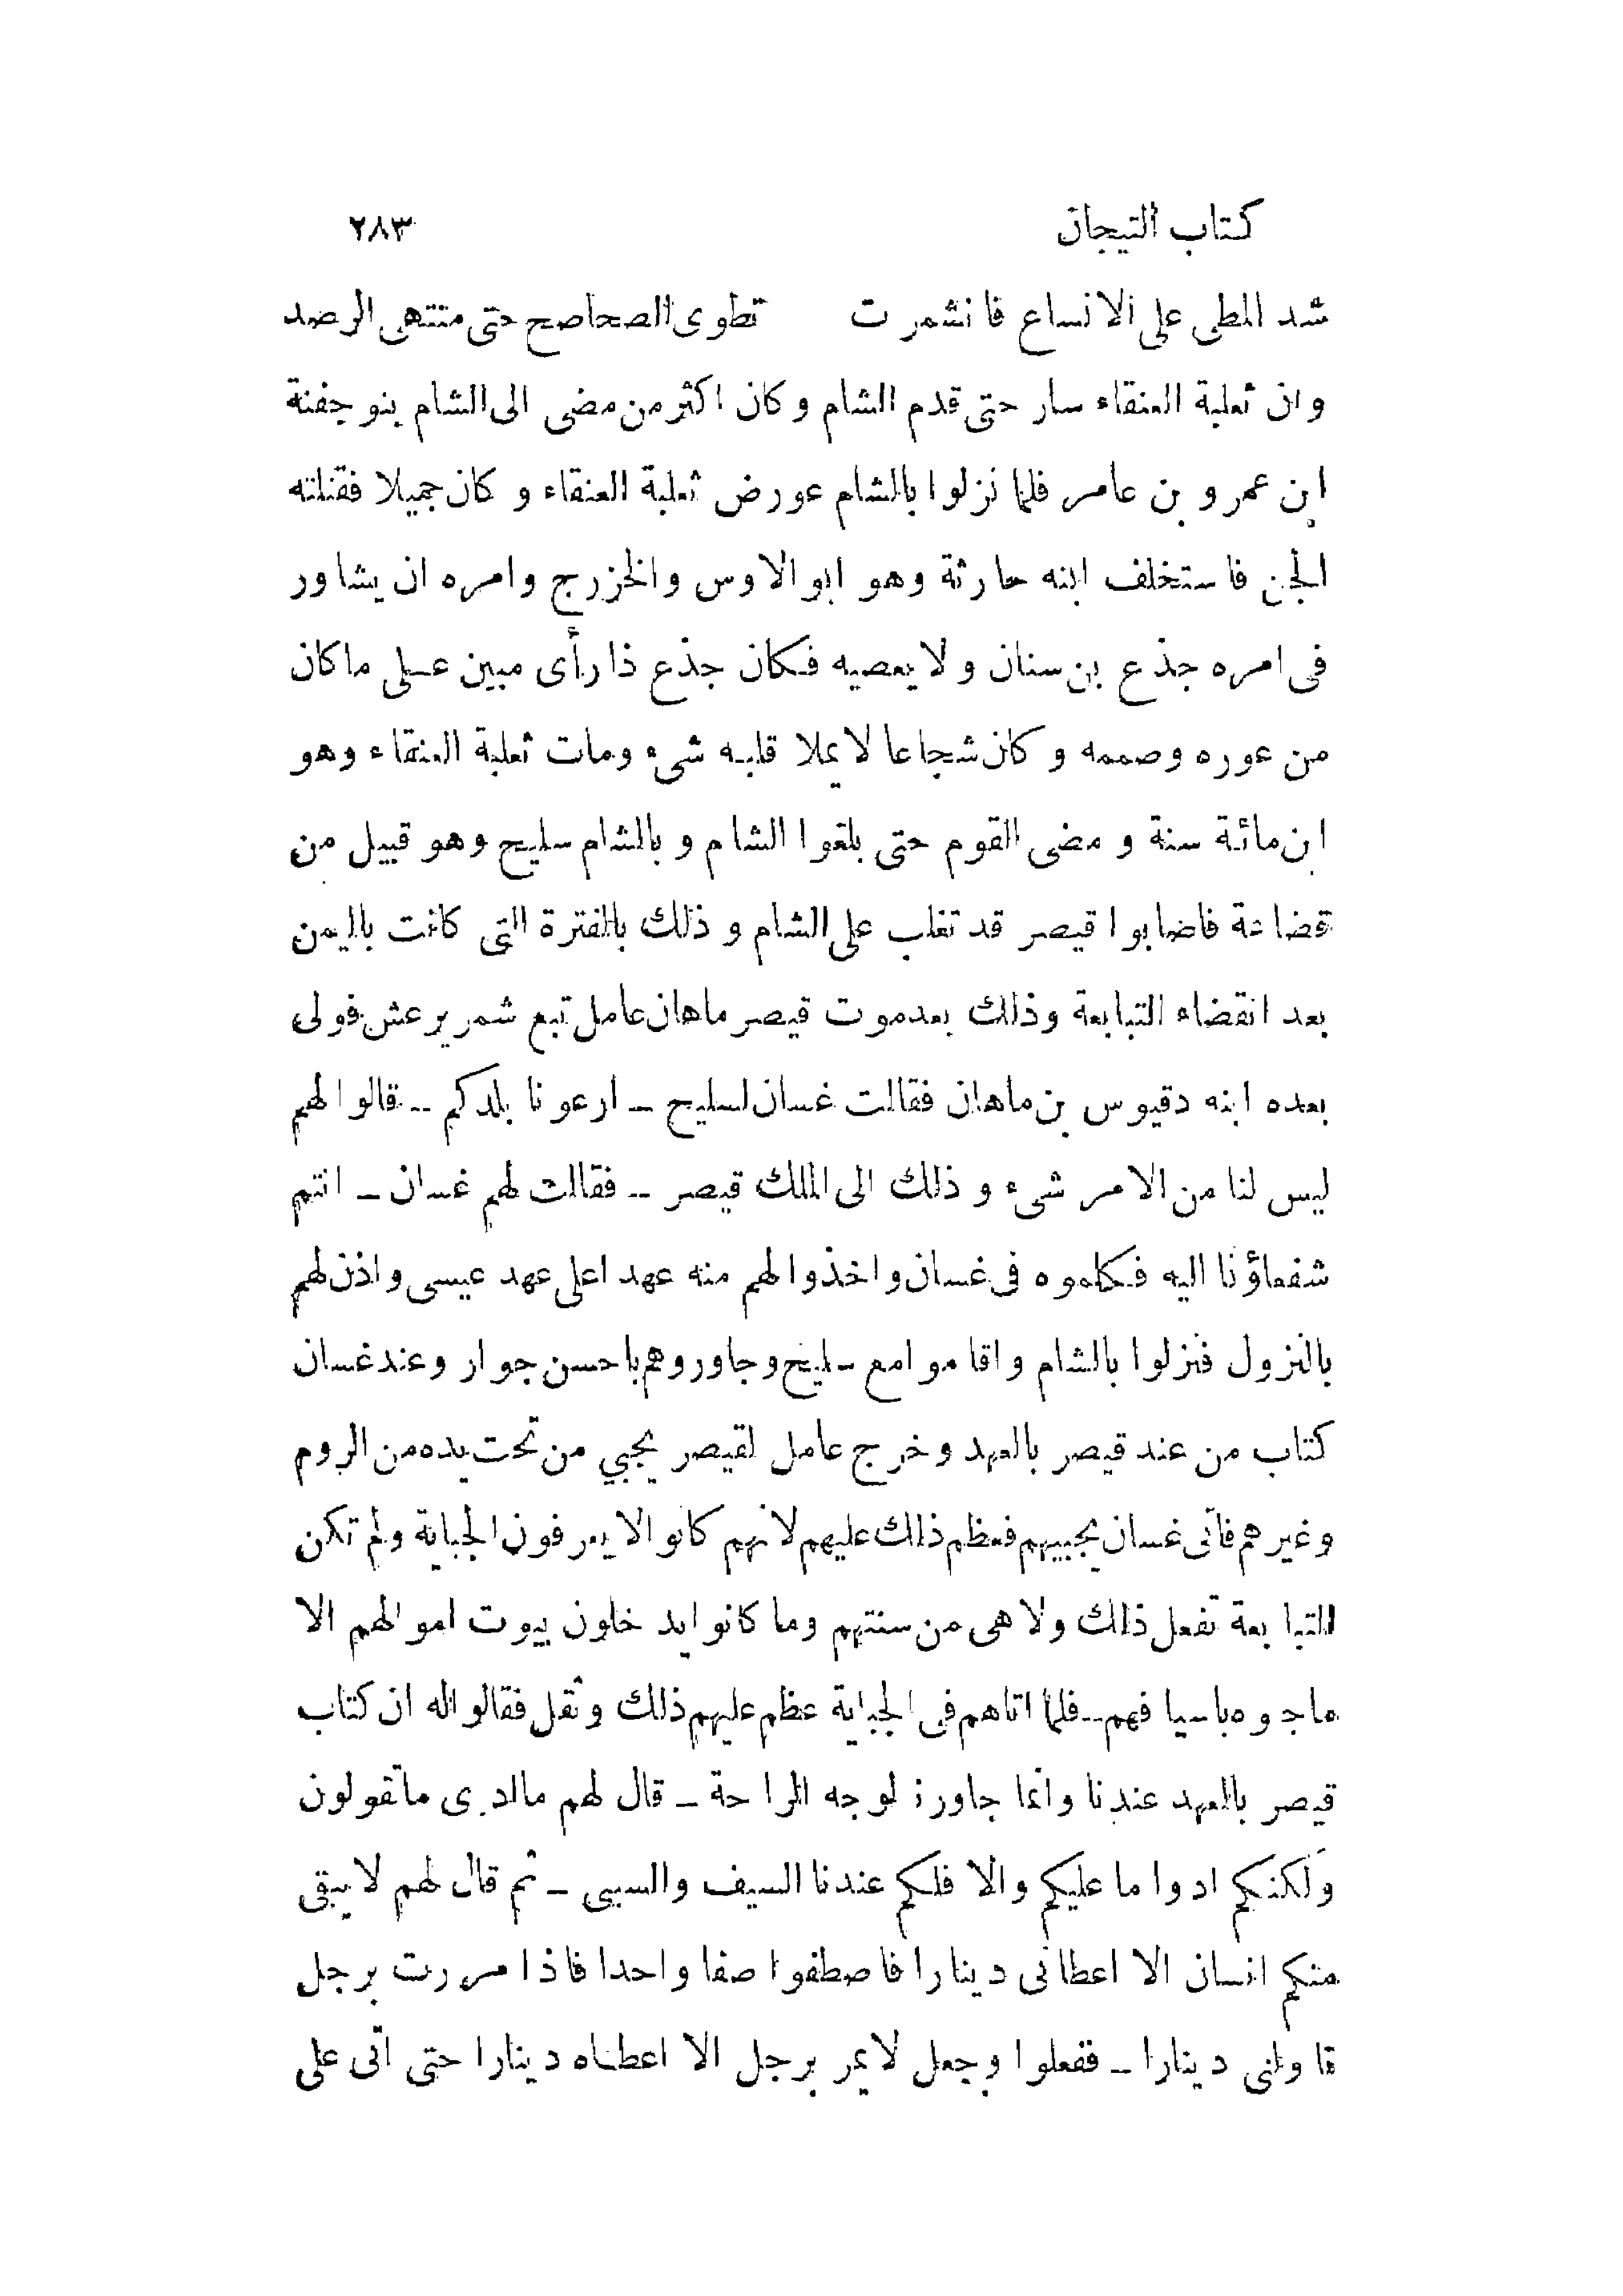 كتاب التيجان ٢٨٣
شد المطى على الانساع فانشمرت تطوى الصحاصح حتى منتهى الرصد
وان ثعلبة العنقاء سار حتى قدم الشام وكان اكثر من مضى الى الشام بنو جفنة
ابن عمرو بن عامر فلما نزلوا بالشام عورض ثعلبة العنقاء وكان جميلا فقتلته
الجن فاستخلف ابنه حارثة وهو ابو الاوس والخزرج وامره ان يشاور
فى امره جذع بن سنان ولا يعصيه فكان جذع ذا رأى مبين على ماكان
من عوره وصممه وكان شجاعا لا يملا قلبه شىء ومات ثعلبة العنقاء وهو
ابن مائة سنة ومضى القوم حتى بلغوا الشام وبالشام سليح وهو قبيل من
قضاعة فاصابوا قيصر قد تغلب على الشام وذلك بالفترة التى كانت باليمن
بعد انقضاء التبابعة وذلك بعد موت قيصر ماهان عامل تبع شمر يرعش فولى
بعده ابنه دقيوس بن ماهان فقالت غسان لسليح ـ ارعونا بلدكم ـ قالوا لهم
ليس لنا من الامر شىء وذلك الى الملك قيصر ـ فقالت لهم غسان ـ انتم
شفعاؤنا اليه فكلموه فى غسان واخذوا لهم منه عهدا على عهد عيسى واذن لهم
بالنزول فنزلوا بالشام واقاموا مع سليح وجاوروهم باحسن جوار وعند غسان
كتاب من عند قيصر بالعهد وخرج عامل لقيصر يجبي من تحت يده من الروم
وغيرهم فأتى غسان يجبيهم فعظم ذلك عليهم لأنهم كانوا لا يعرفون الجباية ولم تكن
التبابعة تفعل ذلك ولا هى من سنتهم وما كانوا يدخلون بيوت اموالهم الا
ماجوه باسيافهم ـ فلما اتاهم فى الجباية عظم عليهم ذلك وثقل فقالوا له ان كتاب
قيصر بالعهد عندنا وانما جاورنا لوجه الراحة ـ قال لهم ما ادرى ما تقولون
ولكنكم ادوا ما عليكم والا فلكم عندنا السيف والسبى ـ ثم قال لهم لا يبقى
منكم انسان الا اعطانى دينارا فاصطفوا صفا واحدا فاذا مررت برجل
ناولنى دينارا ـ ففعلوا وجعل لا يمر برجل الا اعطاه دينارا حتى اتى على